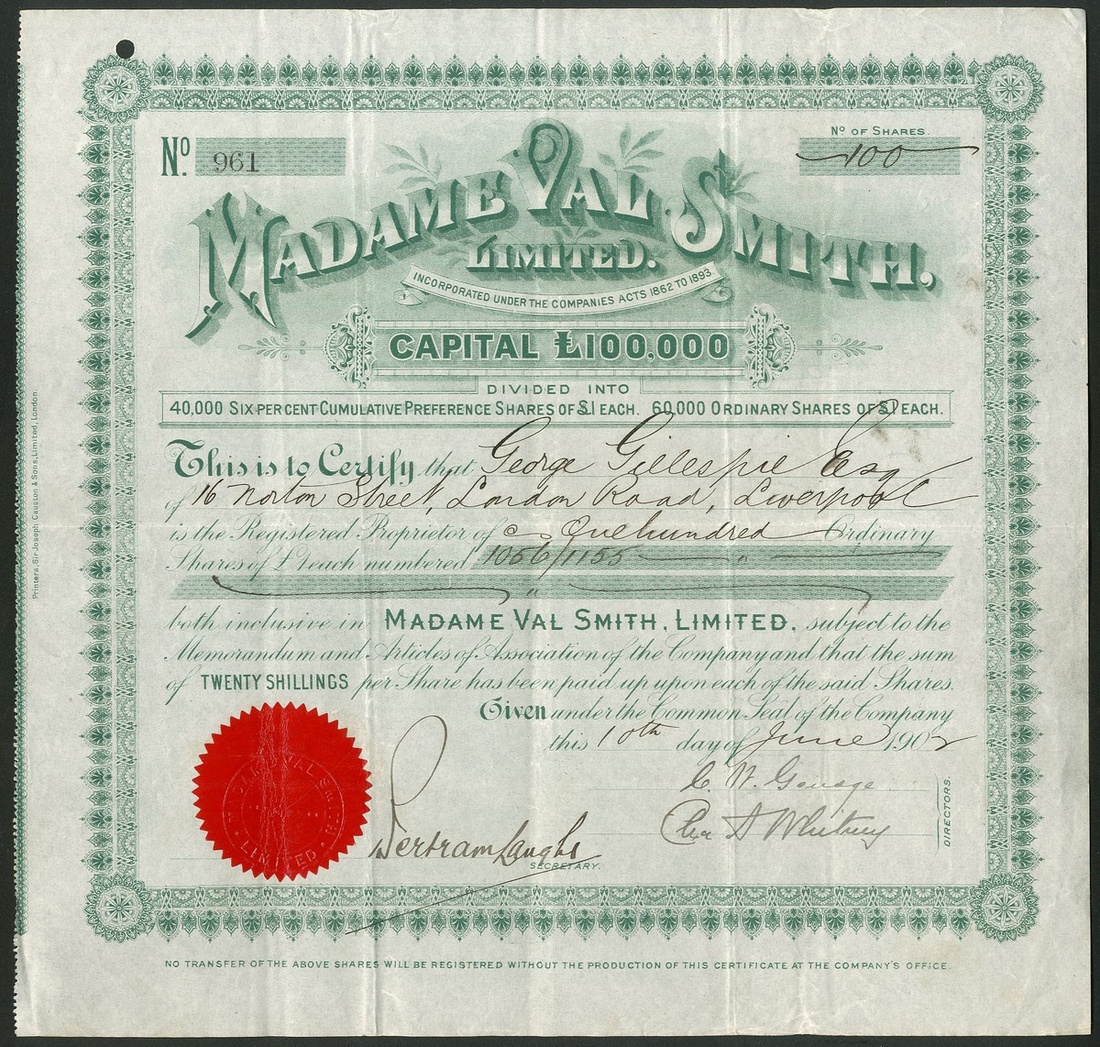 No. 961
No OF SHARES.
100
MADAME VAL SMITH.
LIMITED.
INCORPORATED UNDER THE COMPANIES ACTS 1862 TO 1893.
CAPITAL £100,000
DIVIDED INTO
40,000 SIX PER CENT CUMULATIVE PREFERENCE SHARES OF £1 EACH. 60,000 ORDINARY SHARES OF £1 EACH.
This is to Certify that George Gillespie Esq
of 16 Norton Street, London Road, Liverpool
is the Registered Proprietor of One hundred Ordinary
Shares of £1 each numbered 1056/1155
both inclusive in MADAME VAL SMITH, LIMITED, subject to the
Memorandum and Articles of Association of the Company and that the sum
of TWENTY SHILLINGS per Share has been paid up upon each of the said Shares.
Given under the Common Seal of the Company
this 10th day of June 1902
Chas A Whitney
DIRECTORS.
Bertram
SECRETARY.
VAL SMITH
LIMITED
NO TRANSFER OF THE ABOVE SHARES WILL BE REGISTERED WITHOUT THE PRODUCTION OF THIS CERTIFICATE AT THE COMPANY'S OFFICE.
Printers, Sir Joseph Causton & Sons, Limited, London.